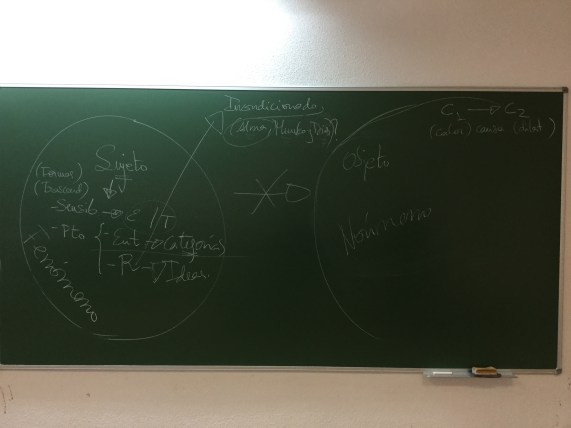 Incondicionado,
(Alma, Mundo y Dios)
C1 → C2
(calor) causa (dilat)
(Formas)
Sujeto
Objeto
-Sensib → E/T
-Pto { -Ent → Categorías
-R → Ideas.
Fenómeno
Noúmeno